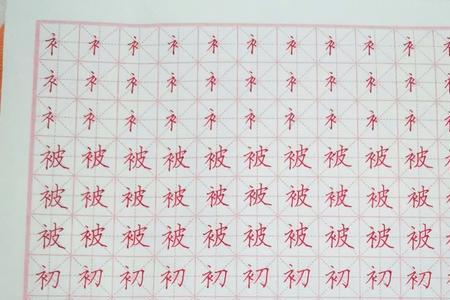 衤衤衤衤衤衤衤衤衤衤
衤衤衤衤衤衤衤衤衤衤
衤衤衤衤衤衤衤衤衤衤
被被被被被被被被被被
被被被被被被被被被被
被被被被被被被被被被
初初初初初初初初初初